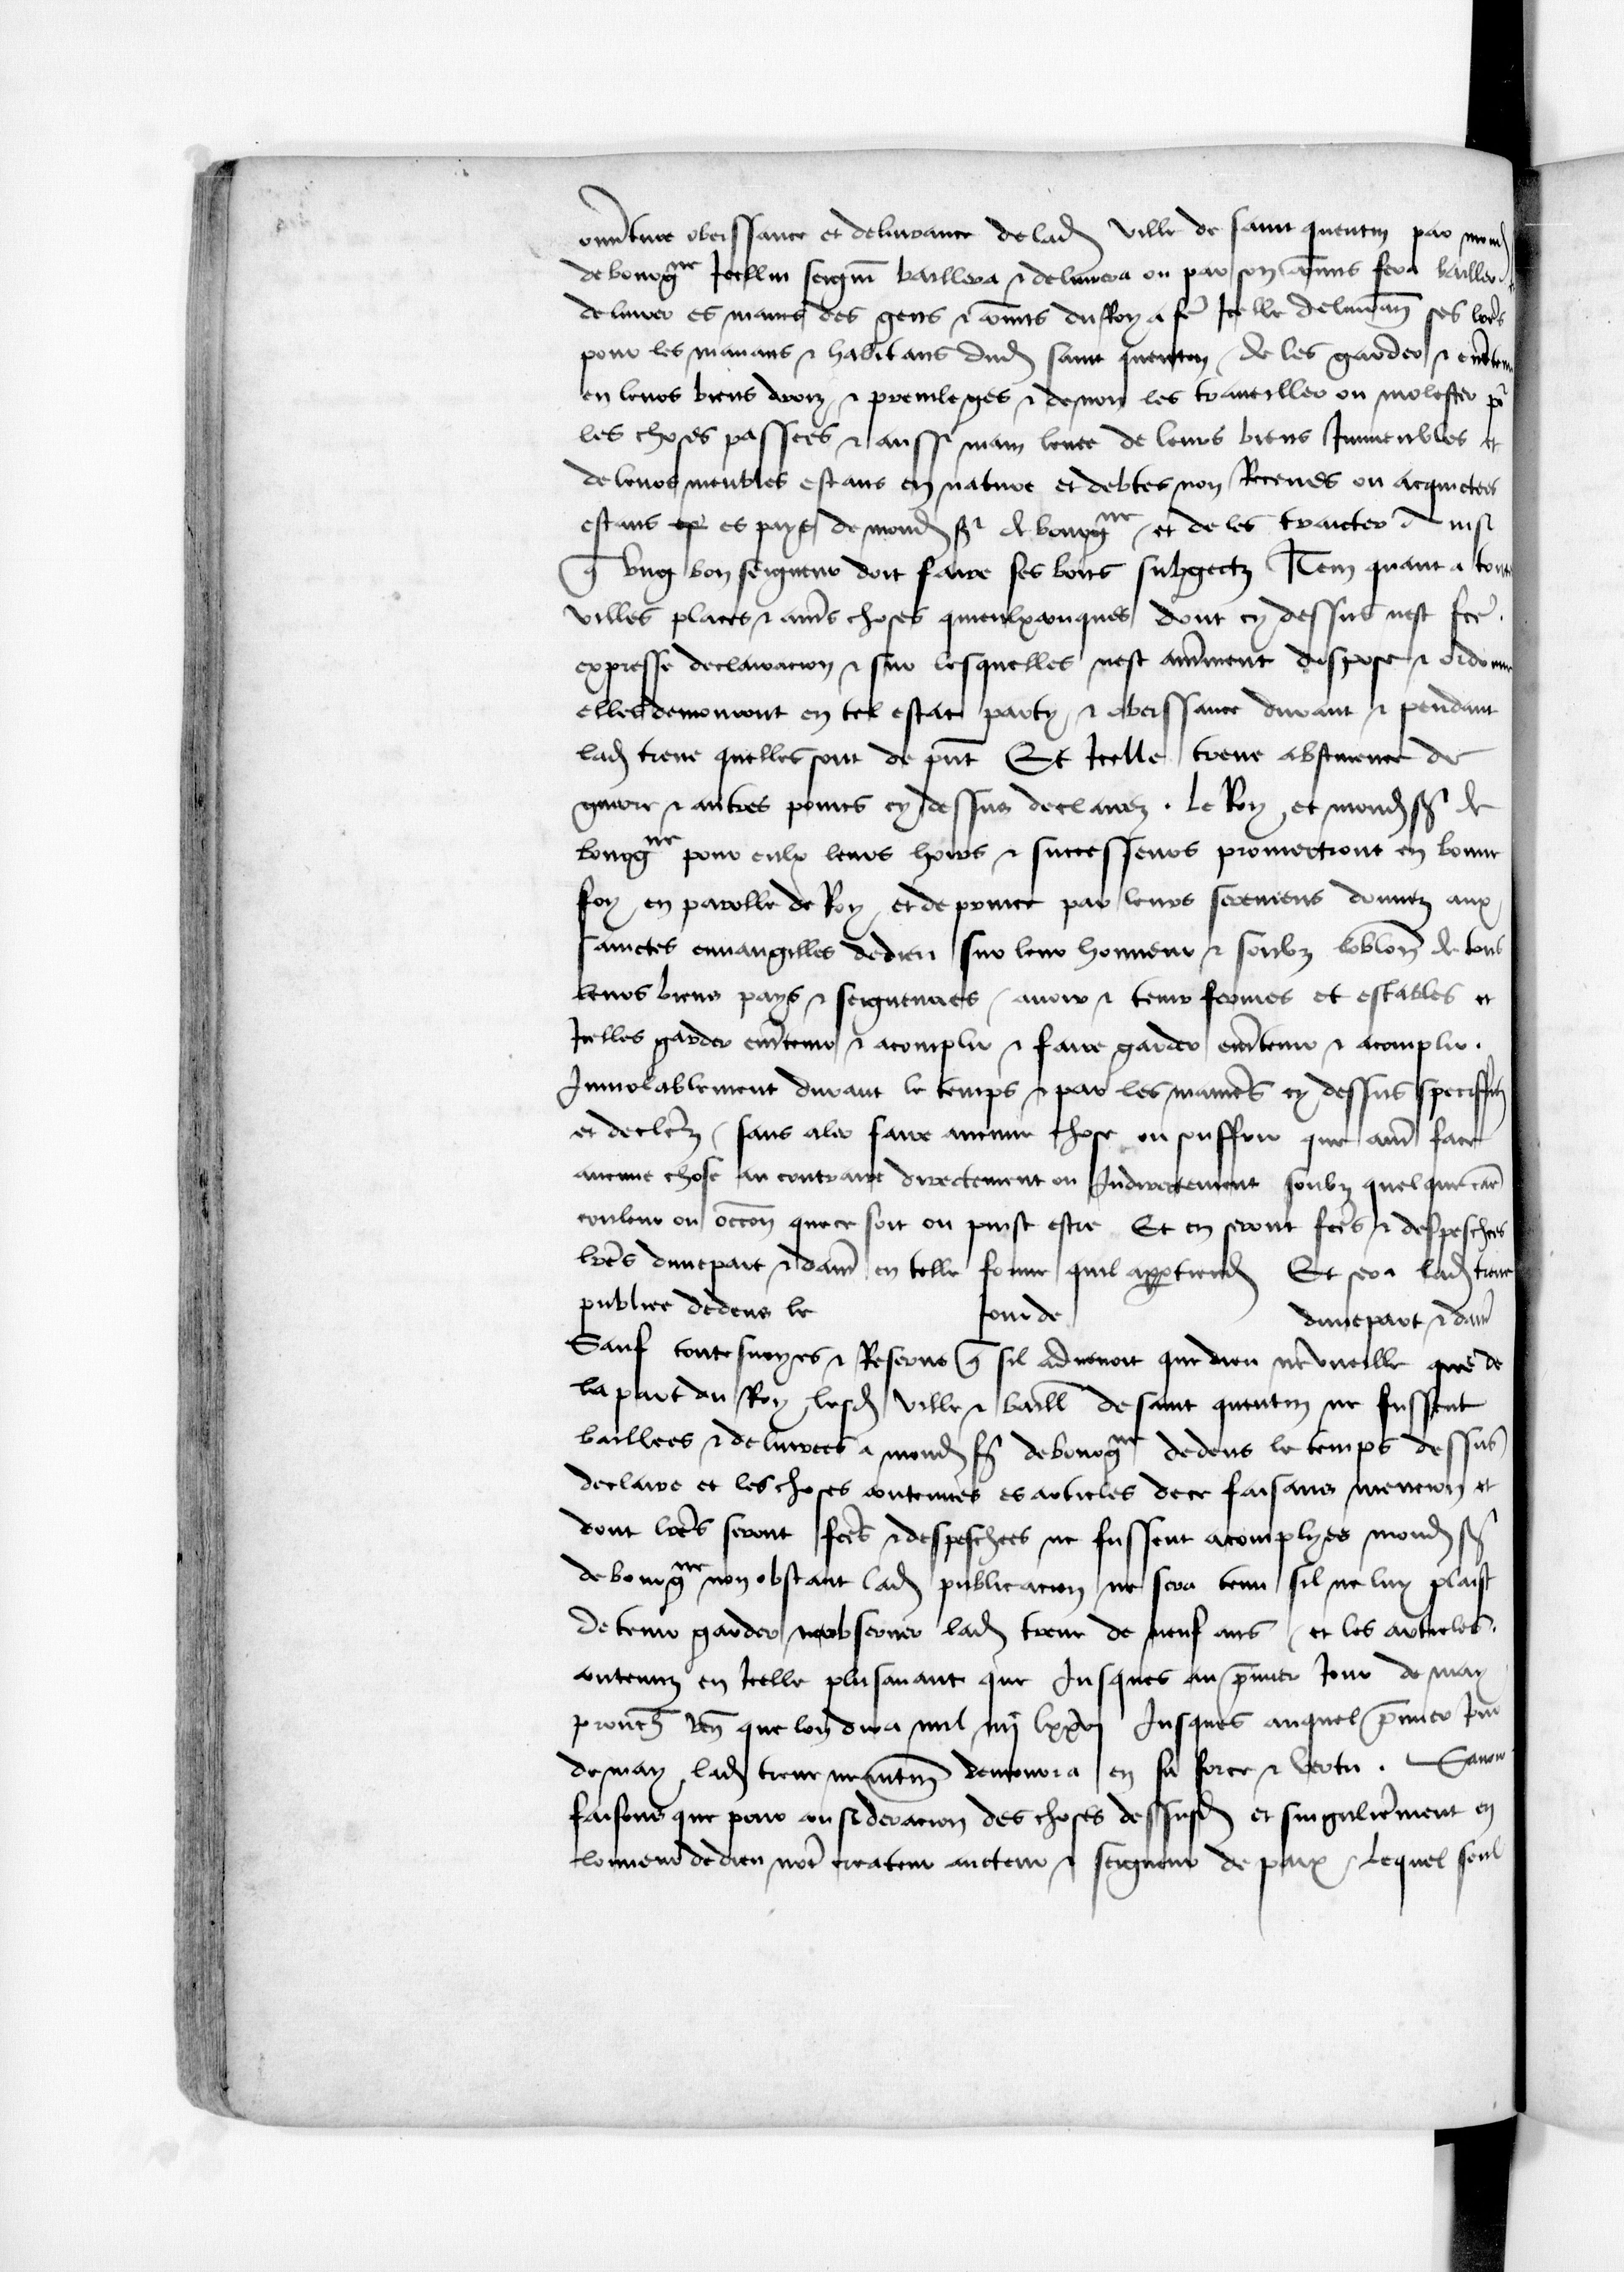 ouvture obeissance et delivrance de lad ville de saint quentin par mond
de bourgne Icellui seignr baillera & delivrera ou par son comis fera bailler &
delivrer es mains des gens & comis du Roy a fe Icelle delivran ses lres
pour les manans & habitans dud saint quentin / de les garder & entretenir
en leurs biens droiz & previleges & de non les traveiller ou molester pr
les choses passees & aussi main levee de leurs biens Immeubles et
de leurs meubles estans en nature et debtes non Receues ou acquictees
estans es pays de mond sr de bourgne / et de les traicter ainsi
q ung bon seigneur doit faire ses bons subgectz Item quant a toutes
villes places & autrs choses quelxconques dont cy dessus nest fce
expresse declaracion & sur lesquelles nest autrment dispose & ordonne
elles demourront en tel estat party / & obeissance durant & pendant
lad treve quelles sont de pnt Et Icelle treve abstinence de
guerre & autres poincts cy dessus declarez . Le Roy et mond sr de
bourgne pour eulx leurs hoirs & successeurs promectront en bonne
foy en parolle de Roy et de prince par leurs seremens donnez aux
sainctes euuangilles de dieu sur leur honneur & soubz loblon de tous
leurs biens pays & seigneuries / avoir & tenir fermes et estables et
Icelles garder entretenir & acomplir & faire garder entretenir & acomplir .
Inviolablement durant le temps & par les manieres cy dessus speciffiees
et declerez / sans aler faire aucune chose ou souffrir que autr face
aucune chose au contraire directement ou Indirectement soubz quelque cause
couleur ou occon que ce soit ou puist estre Et en seront fces & despeschees
lres dune part & dautr en telle forme quil appartiendr Et sera lad treve
publiee dedens le jour de dune part & dautr
Sauf toutesvoyes & Reserve q sil advenoit que dieu ne vueille que de
la part du Roy lesd ville & baill de saint quentin ne fussent
baillees & delivrees a mond sr de bourgne dedens le temps dessus
declare et les choses contenues es articles de ce faisans mencion et
dont lres seront fces & despeschees ne fussent acomplyes mond sr
de bourgne non obstant lad publicacion ne sera tenu sil ne luy plaist
de tenir garder ne observer lad treve de neuf ans / et les articles .
contenuz en Icelle plus avant que Jusques au premier Jour de may
prouch ven que lon dira mil iiij lxxvj Jusques auquel premier Jour
de may lad treve neantm demourra en sa force & vertu . Savoir
faisons que pour consideracion des choses dessusd et singulierment en
lonneur de dieu notr createur aucteur & seigneur de paix / Lequel seul